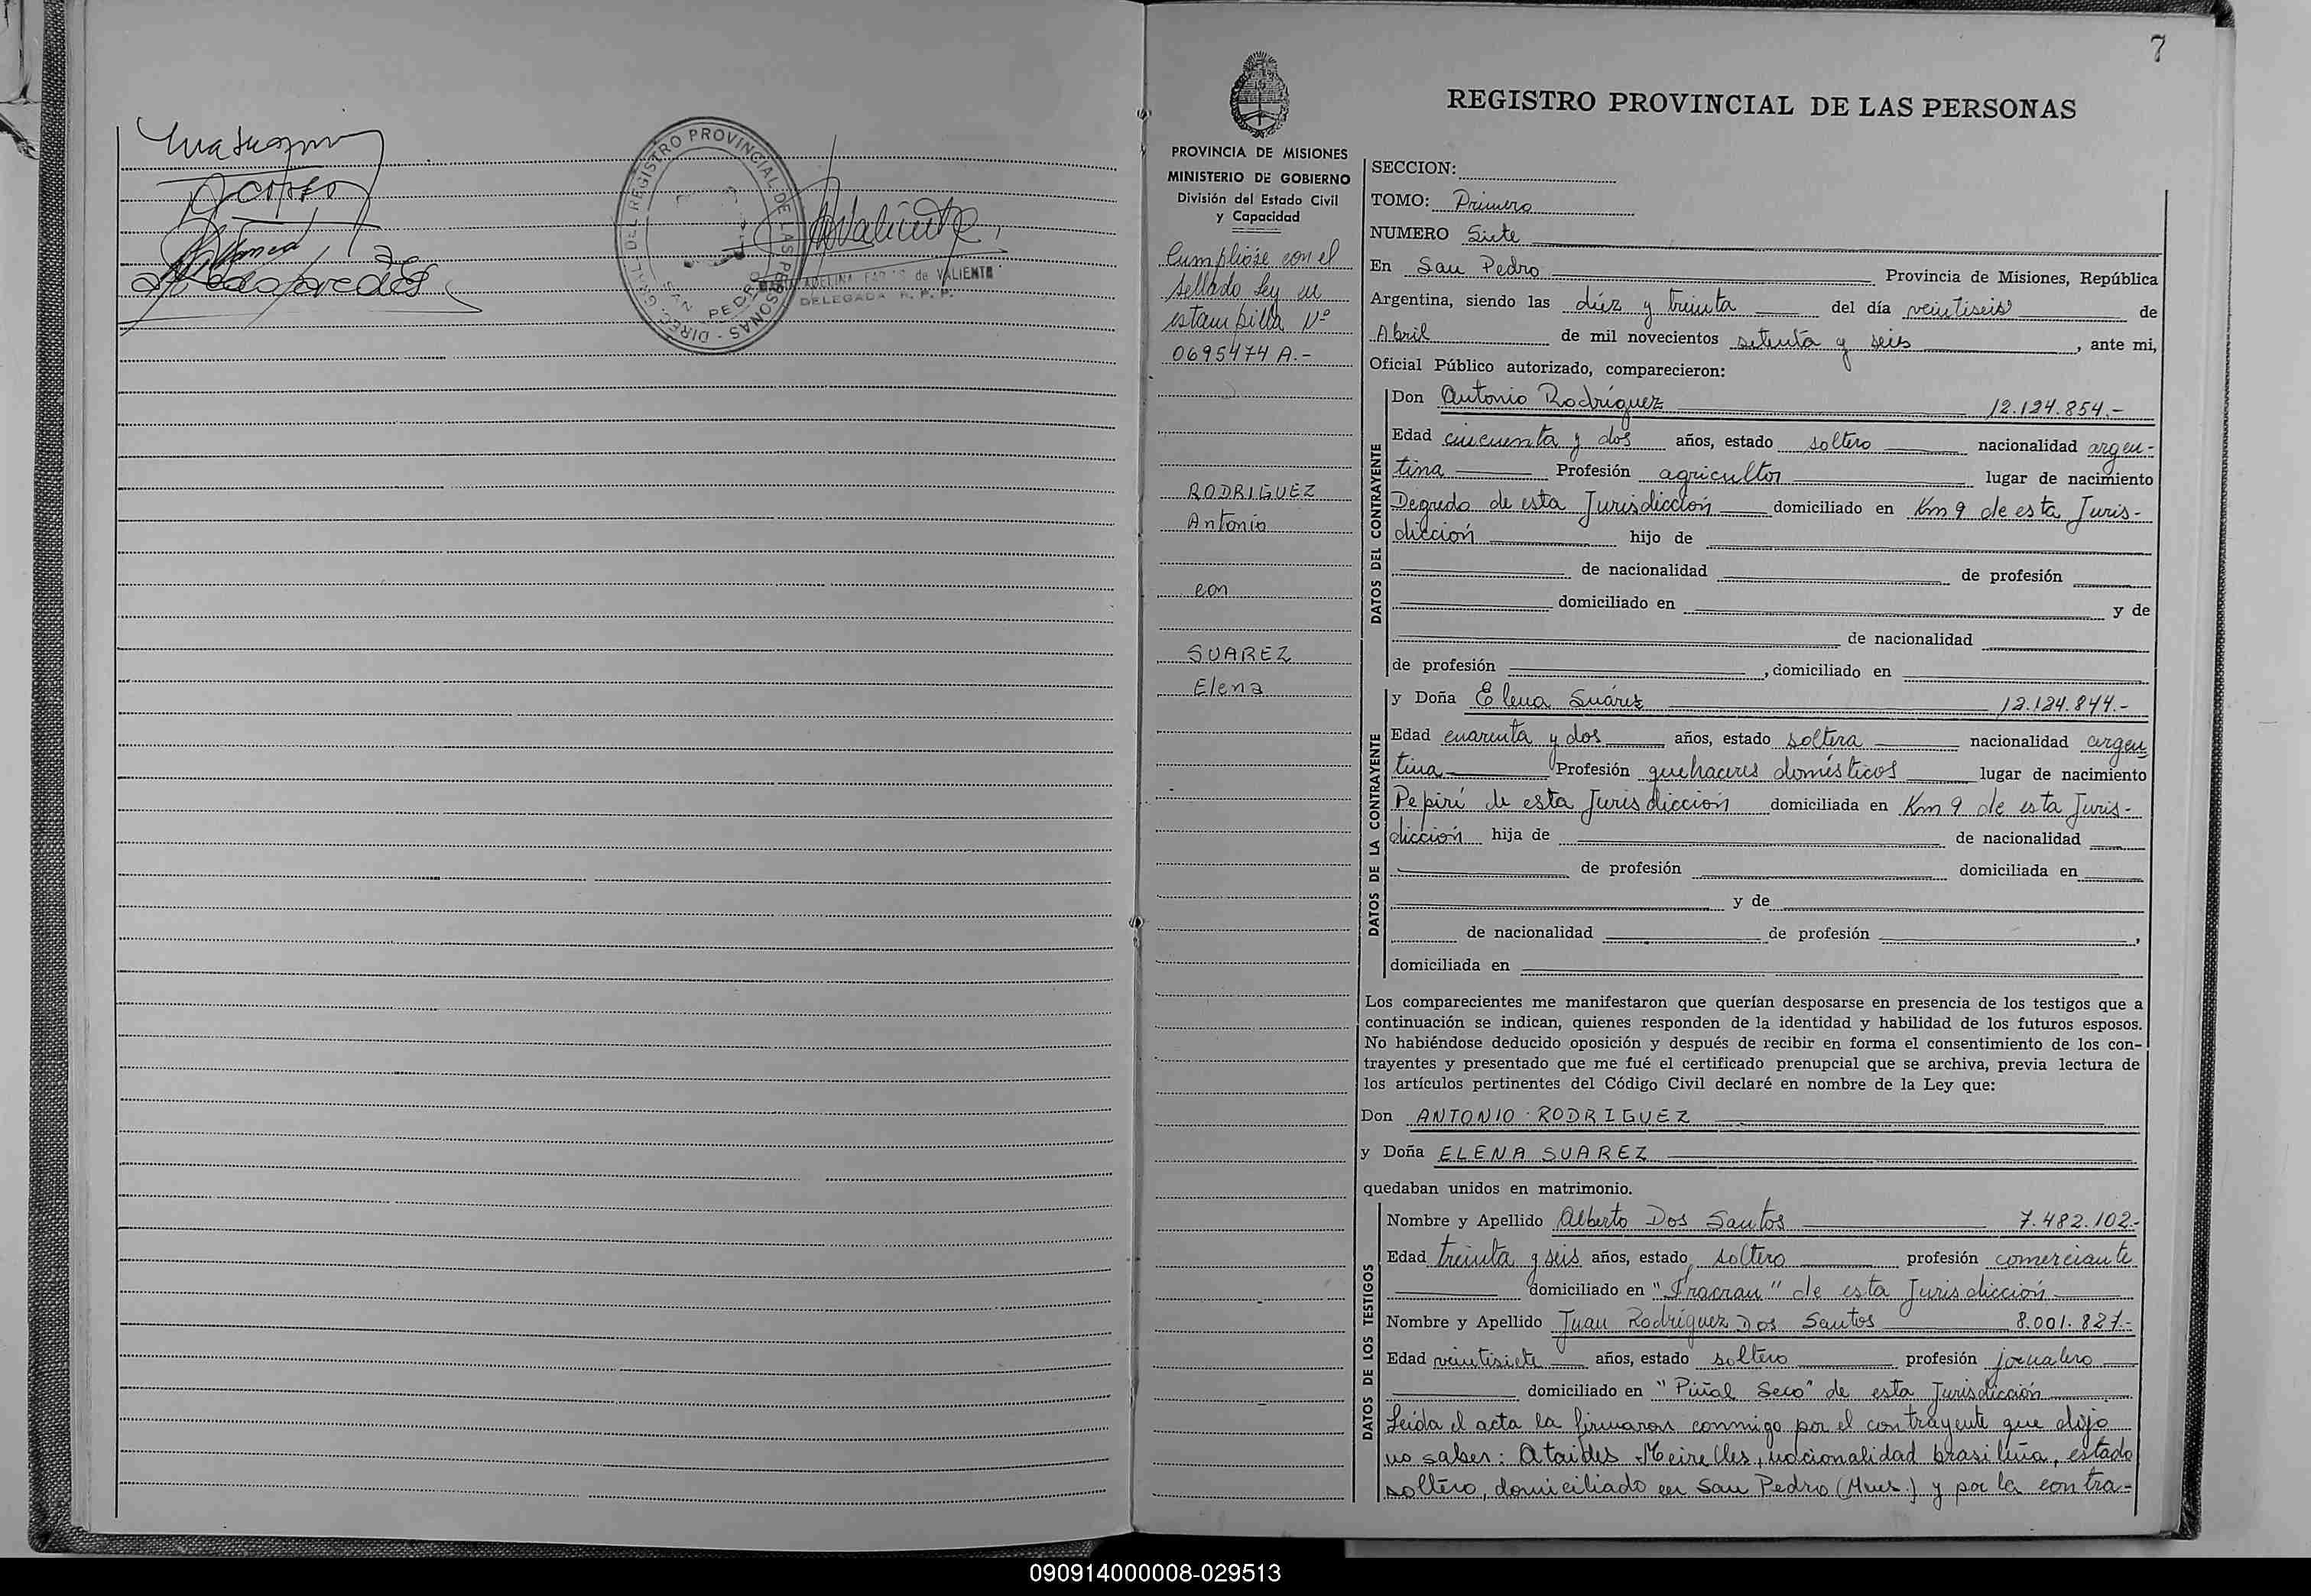 REGISTRO PROVINCIAL DE LAS PERSONAS
SAN PEDRO
de VALIENTE
DELEGADA R. P. P.
7
REGISTRO PROVINCIAL DE LAS PERSONAS
PROVINCIA DE MISIONES
MINISTERIO DE GOBIERNO
División del Estado Civil
y Capacidad
Cumplióse con el
sellado Ley en
estampilla Nº
0695474 A.-
RODRIGUEZ
Antonio
con
SUAREZ
Elena
SECCION:
TOMO: Primero
NUMERO Siete
En San Pedro Provincia de Misiones, República
Argentina, siendo las diez y treinta del día veintiseis de
Abril de mil novecientos setenta y seis, ante mi,
Oficial Público autorizado, comparecieron:
DATOS DEL CONTRAYENTE
Don Antonio Rodríguez 12.124.854.-
Edad cincuenta y dos años, estado soltero nacionalidad argen-
tina Profesión agricultor lugar de nacimiento
de esta Jurisdicción domiciliado en Km 9 de esta Juris-
dicción hijo de
de nacionalidad de profesión
domiciliado en y de
de nacionalidad
de profesión , domiciliado en
DATOS DE LA CONTRAYENTE
y Doña Elena Suárez 12.124.844.-
Edad cuarenta y dos años, estado soltera nacionalidad argen
tina Profesión quehaceres domésticos lugar de nacimiento
Pepirí de esta Jurisdicción domiciliada en Km 9 de esta Juris-
dicción hija de de nacionalidad
de profesión domiciliada en
y de
de nacionalidad de profesión ,
domiciliada en
Los comparecientes me manifestaron que querían desposarse en presencia de los testigos que a
continuación se indican, quienes responden de la identidad y habilidad de los futuros esposos.
No habiéndose deducido oposición y después de recibir en forma el consentimiento de los con-
trayentes y presentado que me fué el certificado prenupcial que se archiva, previa lectura de
los artículos pertinentes del Código Civil declaré en nombre de la Ley que:
Don ANTONIO RODRIGUEZ
y Doña ELENA SUAREZ
quedaban unidos en matrimonio.
DATOS DE LOS TESTIGOS
Nombre y Apellido Alberto Dos Santos 7.482.102-
Edad treinta y seis años, estado soltero profesión comerciante
domiciliado en "Fracran" de esta Jurisdicción
Nombre y Apellido Juan Rodríguez Dos Santos 8.001.827.-
Edad veintisiete años, estado soltero profesión jornalero
domiciliado en "Piñal Seco" de esta Jurisdicción
Leída el acta la firmaron conmigo por el contrayente que dijo
no saber: Ataides Meirelles, nacionalidad brasileña, estado
soltero, domiciliado en San Pedro (Mnes.) y por la contra-
090914000008-029513